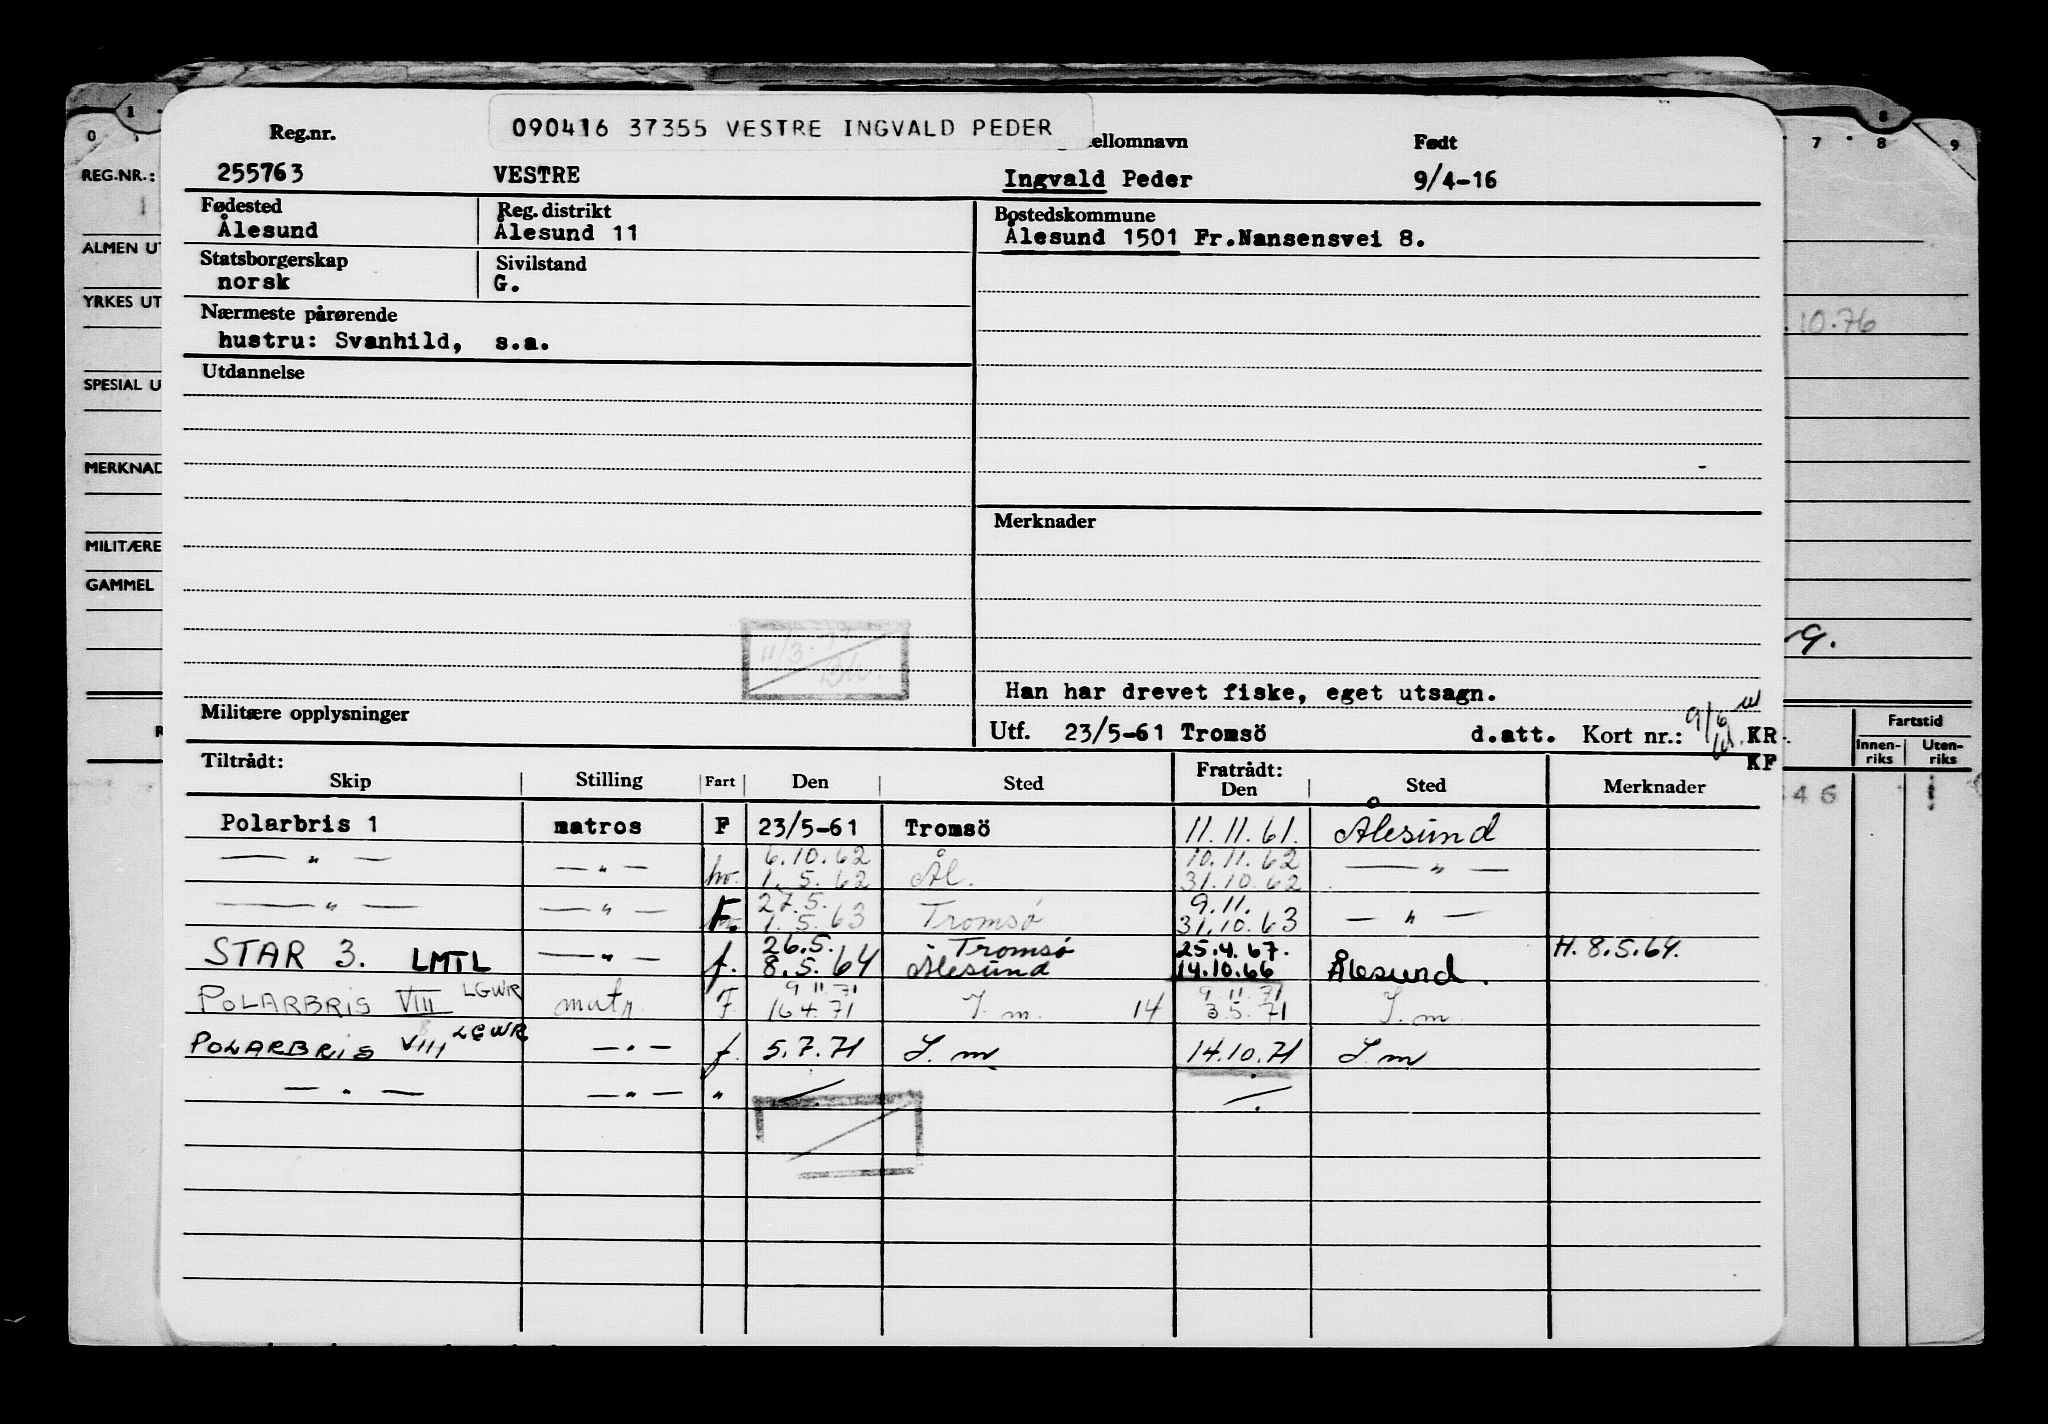 0 1 7 8 8 9
Reg.nr. 090416 37355 VESTRE INGVALD PEDER ellomnavn Født
REG.NR.: 255763 VESTRE Ingvald Peder 9/4-16
Fødested Reg. distrikt Bostedskommune
Ålesund Ålesund 11 Ålesund 1501 Fr.Nansensvei 8.
ALMEN UT
Statsborgerskap Sivilstand
norsk G.
YRKES UT
Nærmeste pårørende 10.76
hustru: Svanhild, s.a.
Utdannelse
SPESIAL U
MERKNAD
Merknader
MILITÆRE
GAMMEL
11/3-
Han har drevet fiske, eget utsagn.
Militære opplysninger Utf. 23/5-61 Tromsö d.att. Kort nr.: KR.
KF
Fartstid
Innen-riks Uten-riks
Tiltrådt: Fratrådt:
Skip Stilling Fart Den Sted Den Sted Merknader
46
Polarbris 1 matros F 23/5-61 Tromsö 11.11.61. Ålesund
6.10.62 10.11.62
— " — — " — hv. 1.5.62 Ål. 31.10.62 — " —
27.5. 9.11.
— " — — " — F. 1.5.63 Tromsø 31.10.63 — " —
26.5. Tromsø 25.4.67. H. 8.5.64.
STAR 3. LMTL — " — f. 8.5.64 Ålesund 14.10.66 Ålesund.
9 11 71 9 11 71
POLARBRIS VIII LGWR matr F. 16 4. 71 I. m. 14 3. 5. 71 I. m
POLARBRIS VIII LGWR — " — f. 5.7.71 I. m 14.10.71 I. m
— " — — " — "